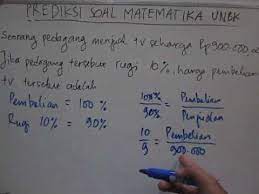 PREDIKSI SOAL MATEMATIKA UNBK
Seorang pedagang menjual tv seharga Rp900.000,00
Jika pedagang tersebut rugi 10%, harga pembelian
tv tersebut adalah
Pembelian = 100 %
Rugi 10% = 90%
100% / 90% = Pembelian / Penjualan
10 / 9 = Pembelian / 900.000